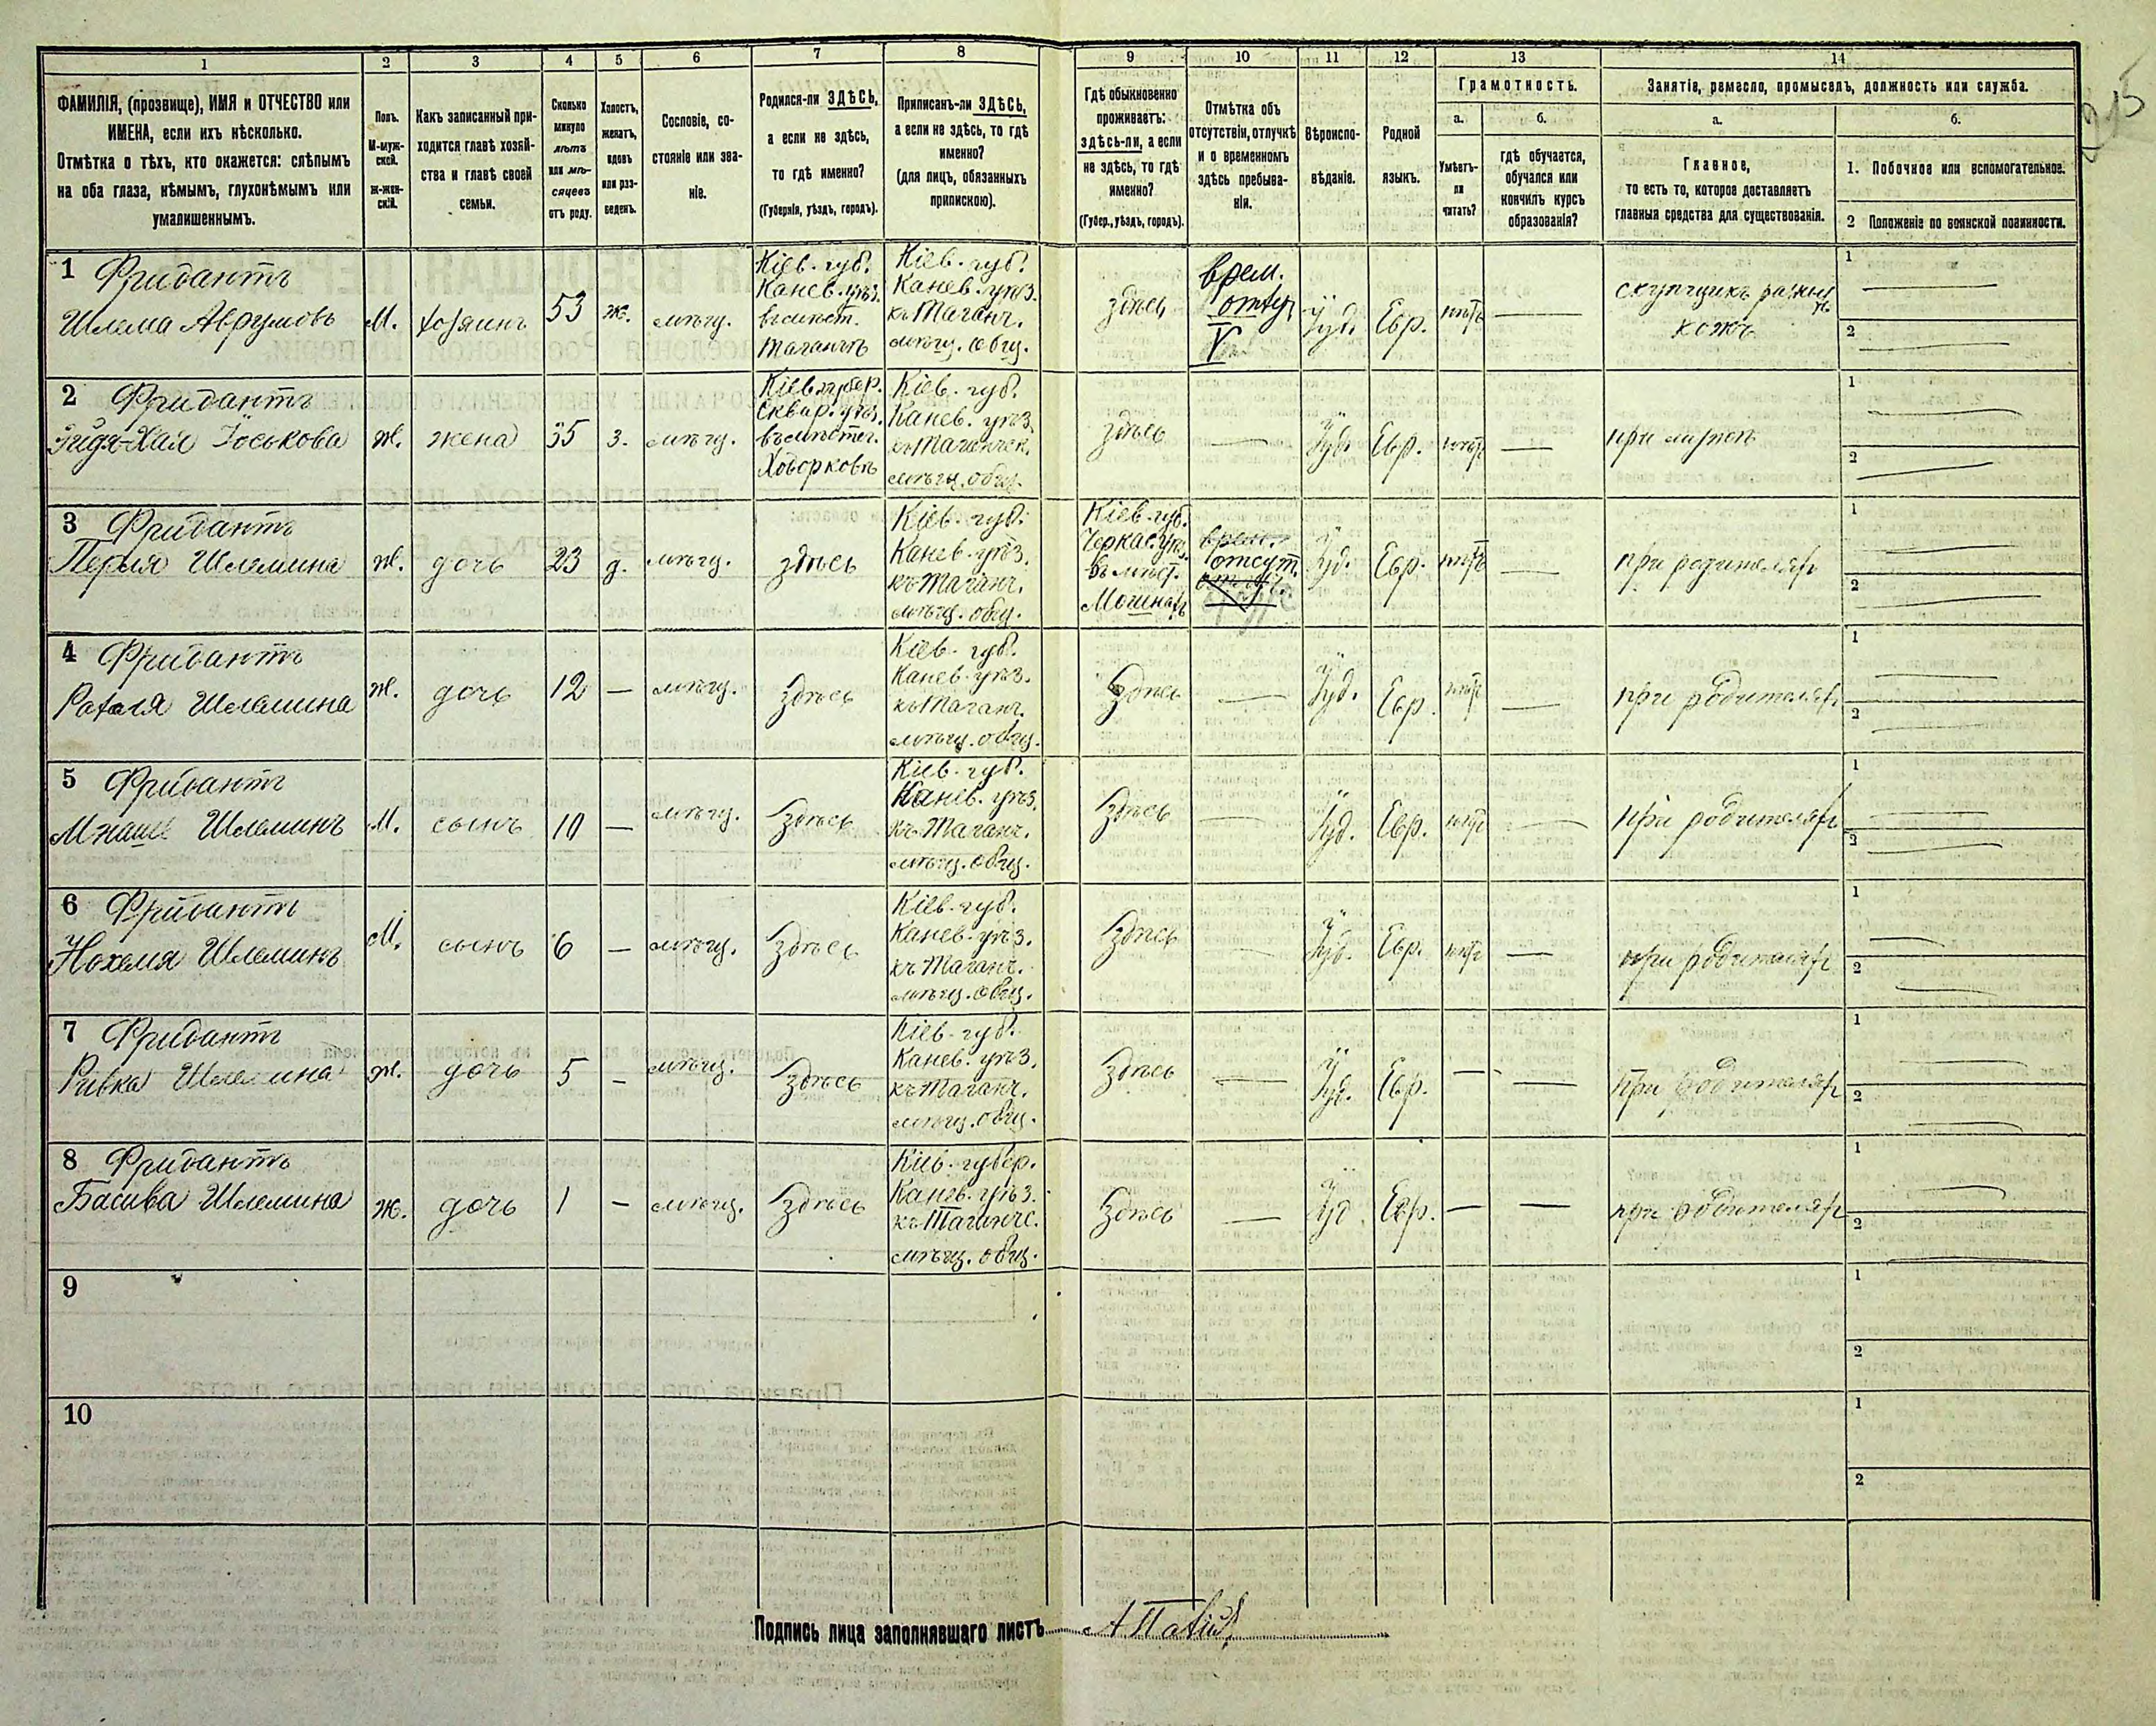 215
1 2 3 4 5 6 7 8 9 10 11 12 13 14
ФАМИЛІЯ, (прозвище), ИМЯ и ОТЧЕСТВО или
ИМЕНА, если ихъ нѣсколько.
Отмѣтка о тѣхъ, кто окажется: слѣпымъ
на оба глаза, нѣмымъ, глухонѣмымъ или
умалишеннымъ.
Полъ.
М-муж-
ской.
ж-жен-
скій.
Какъ записанный при-
ходится главѣ хозяй-
ства и главѣ своей
семьи.
Сколько
минуло
лѣтъ
или мѣ-
сяцевъ
отъ роду.
Холостъ,
женатъ,
вдовъ
или раз-
веденъ.
Сословіе, со-
стояніе или зва-
ніе.
Родился-ли ЗДѢСЬ,
а если не здѣсь,
то гдѣ именно?
(Губернія, уѣздъ, городъ).
Приписанъ-ли ЗДѢСЬ,
а если не здѣсь, то гдѣ
именно?
(для лицъ, обязанныхъ
припискою).
Гдѣ обыкновенно
проживаетъ:
здѣсь-ли, а если
не здѣсь, то гдѣ
именно?
(Губер., уѣздъ, городъ).
Отмѣтка объ
отсутствіи, отлучкѣ
и о временномъ
здѣсь пребыва-
ніи.
Вѣроиспо-
вѣданіе.
Родной
языкъ.
Грамотность.
а.
Умѣетъ-
ли
читать?
б.
гдѣ обучается,
обучался или
кончилъ курсъ
образованія?
Занятіе, ремесло, промыселъ, должность или служба.
а.
Главное,
то есть то, которое доставляетъ
главныя средства для существованія.
б.
1. Побочное или вспомогательное.
2 Положеніе по воинской повинности.
1 Фридантъ
Шлема Аврумовъ
М.
хозяинъ
53
ж.
мѣщ.
Кіев. губ.
Канев. уѣз.
въ мѣст.
Таганчѣ
Кіев. губ.
Канев. уѣз.
къ Таганч.
мѣщ. общ.
здѣсь
врем.
V
Іуд.
Евр.
нѣтъ
—
скупщикъ
кожъ
1 —
2 —
2 Фридантъ
Хая Іоськова
ж.
жена
35
з.
мѣщ.
Кіев. губер.
Сквир. уѣз.
въ мѣстеч.
Ходорковѣ
Кіев. губ.
Канев. уѣз.
къ Таганчск.
мѣщ. общ.
здѣсь
—
Іуд.
Евр.
нѣтъ
—
при мужѣ
1 —
2 —
3 Фридантъ
Перля Шлемина
ж.
дочь
23
д.
мѣщ.
здѣсь
Кіев. губ.
Канев. уѣз.
къ Таганч.
мѣщ. общ.
Кіев. губ.
Черкас. уѣз.
въ мѣст.
врем.
отсут.
Іуд.
Евр.
нѣтъ
—
при родителях
1 —
2 —
4 Фридантъ
Рахля Шлемина
ж.
дочь
12
—
мѣщ.
здѣсь
Кіев. губ.
Канев. уѣз.
къ Таганч.
мѣщ. общ.
здѣсь
—
Іуд.
Евр.
нѣтъ
—
при родителях
1 —
2 —
5 Фридантъ
Мнаше Шлеминъ
М.
сынъ
10
—
мѣщ.
здѣсь
Кіев. губ.
Канев. уѣз.
къ Таганч.
мѣщ. общ.
здѣсь
—
Іуд.
Евр.
нѣтъ
—
при родителях
1 —
2 —
6 Фридантъ
Нохемя Шлеминъ
М.
сынъ
6
—
мѣщ.
здѣсь
Кіев. губ.
Канев. уѣз.
къ Таганч.
мѣщ. общ.
здѣсь
—
Іуд.
Евр.
нѣтъ
—
при родителях
1 —
2 —
7 Фридантъ
Ривка Шлемина
ж.
дочь
5
—
мѣщ.
здѣсь
Кіев. губ.
Канев. уѣз.
къ Таганч.
мѣщ. общ.
здѣсь
—
Іуд.
Евр.
—
—
при родителях
1 —
2 —
8 Фридантъ
Басива Шлемина
ж.
дочь
1
—
мѣщ.
здѣсь
Кіев. губер.
Канев. уѣз.
къ Таганчс.
мѣщ. общ.
здѣсь
—
Іуд.
Евр.
—
—
при родителях
1 —
2 —
9
1
2
10
1
2
Подпись лица заполнявшаго листъ